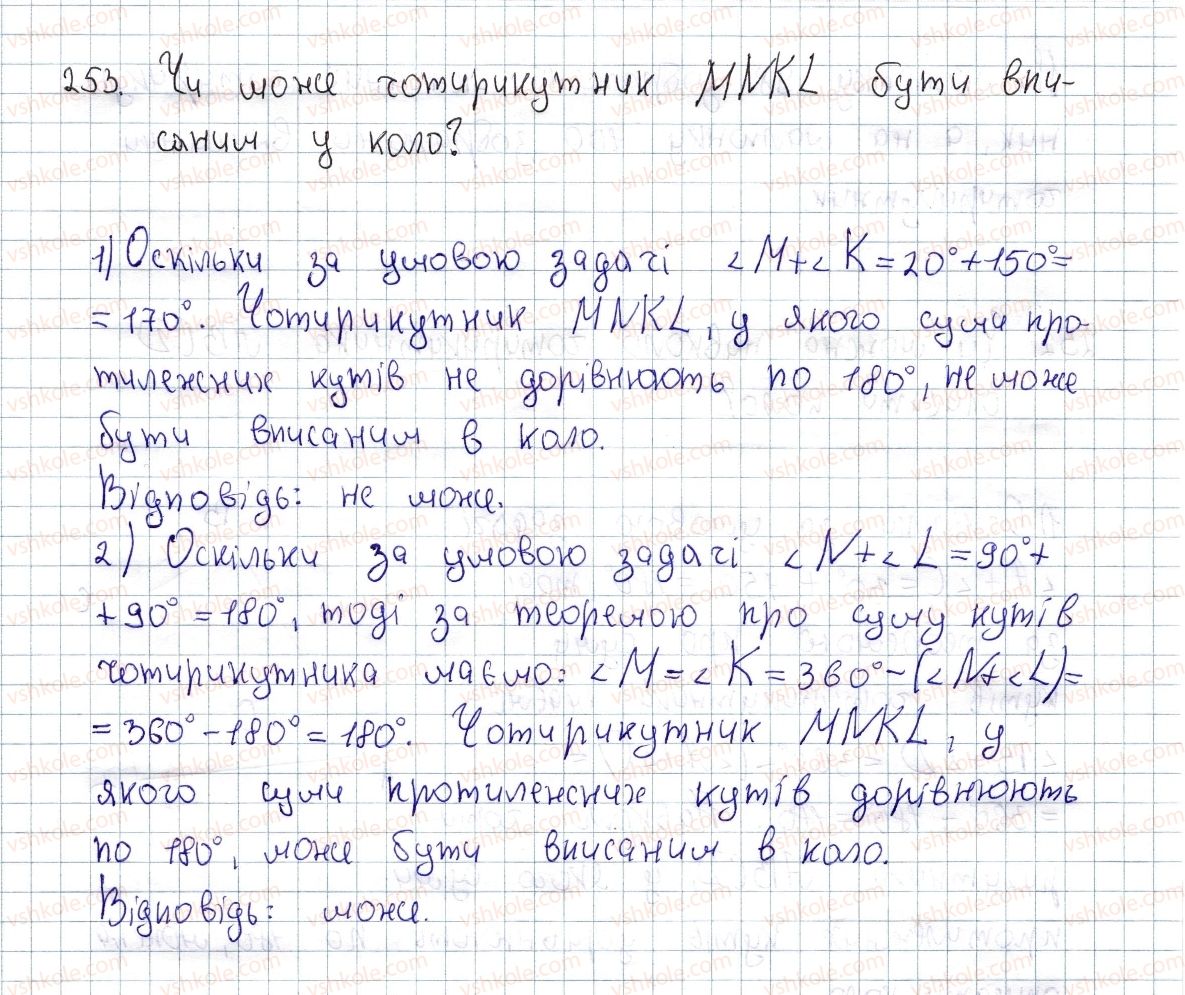 253. Чи може чотирикутник MNKL бути впи-
саним у коло?
1) Оскільки за умовою задачі ∠M+∠K=20°+150°=
=170°. Чотирикутник MNKL, у якого суми про-
тилежних кутів не дорівнюють по 180°, не може
бути вписаним в коло.
Відповідь: не може.
2) Оскільки за умовою задачі ∠N+∠L=90°+
+90°=180°, тоді за теоремою про суму кутів
чотирикутника маємо: ∠M=∠K=360°-(∠N+∠L)=
=360°-180°=180°. Чотирикутник MNKL, у
якого суми протилежних кутів дорівнюють
по 180°, може бути вписаним в коло.
Відповідь: може.